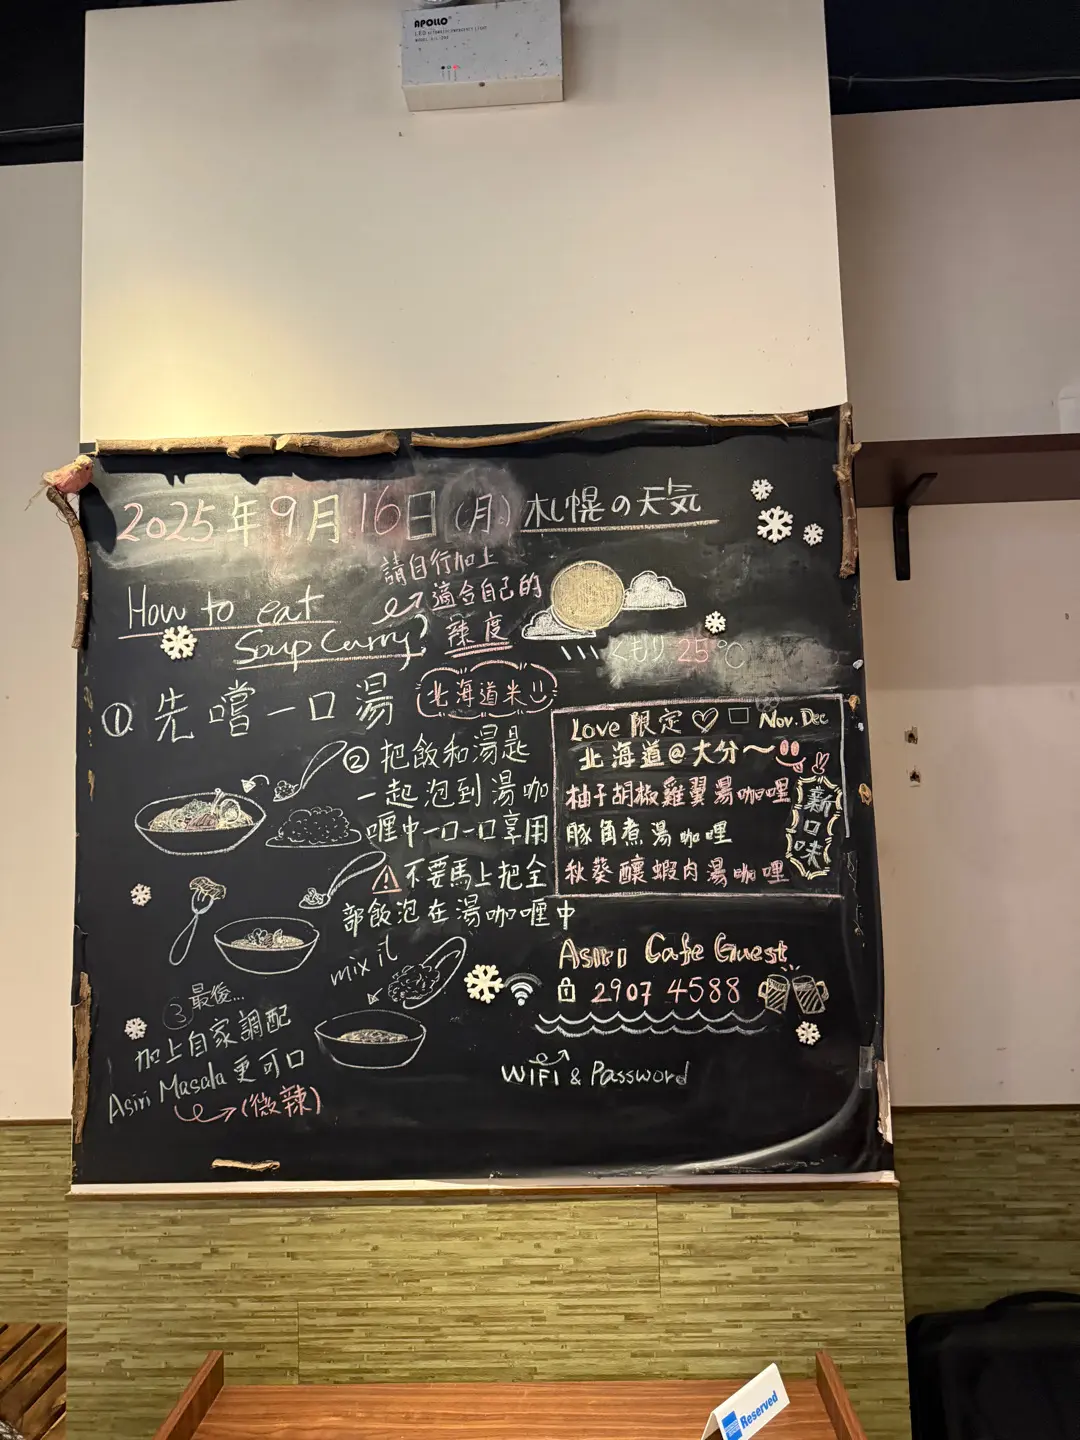 APOLLO
2025年9月16日(月) 札幌の天気
請自行加上
適合自己的
辣度
How to eat
Soup Curry?
くもり 25℃
① 先嚐一口湯
北海道米
② 把飯和湯匙
一起泡到湯咖
喱中一口一口享用
不要馬上把全
部飯泡在湯咖喱中
mix it
③ 最後...
加上自家調配
Asiri Masala 更可口
(微辣)
Love 限定♡ □ Nov. Dec
北海道@大分～
柚子胡椒雞翼湯咖喱
豚角煮湯咖哩
秋葵釀蝦肉湯咖哩
新口味
Asiri Cafe Guest
2907 4588
WiFi & Password
Reserved